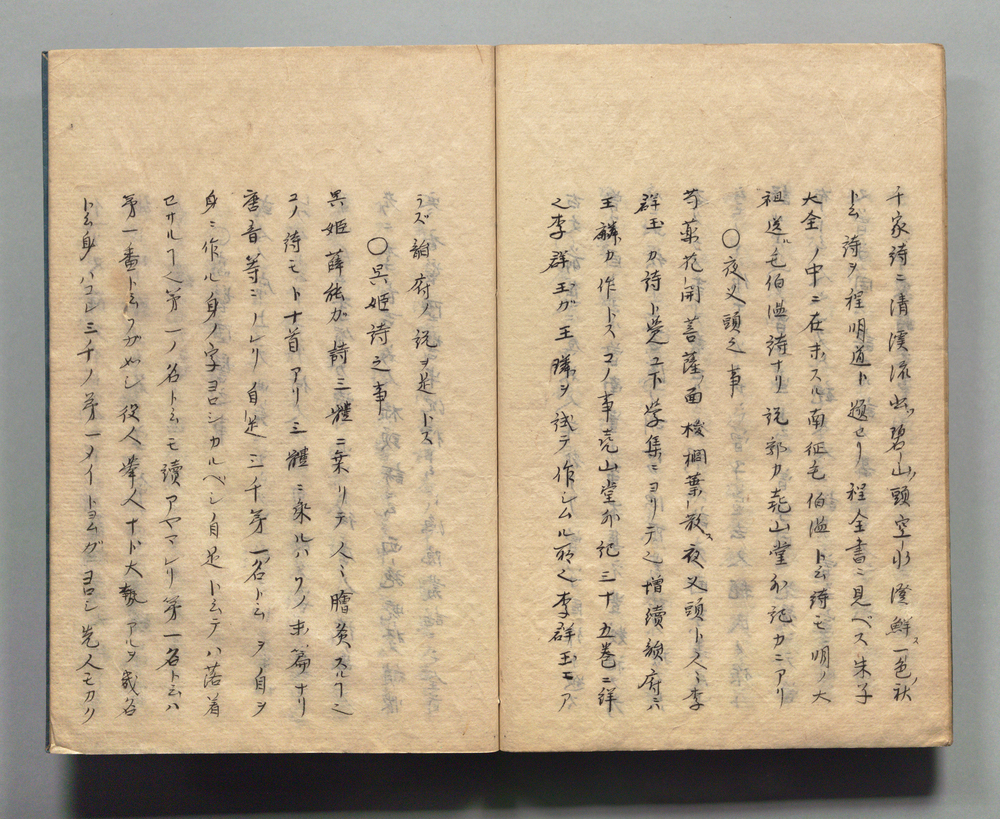 千家詩ニ清溪流出碧山頭空水澄鮮一色秋
ト云詩ヲ程明道ト題セリ程全書ニ見ヘス朱子
大全ノ中ニ在ホスル南征毛伯温ト云詩モ明ノ大
祖送ル毛伯温詩ナリ説郛カ堯山堂外記カニアリ
〇夜叉頭之事
芍薬花開菩薩面椶櫚葉散夜叉頭ト人々李
群玉カ詩ト覚ユ下学集ニヨリテ之増續韻府ニハ
王麟カ作トスコノ事堯山堂外記三十五巻ニ詳
之李群玉ガ王麟ヲ試テ作シムル所之李群玉モア
ラズ韻府ノ説ヲ是トス
〇呉姫詩之事
呉姫薛能ガ詩三體ニ乗リテ人々膾炙スルフ之
コノ詩モト十首アリ三體ニ乗ルハ八ノ末篇ナリ
唐音等ニハレリ自是三千第一名ト云ヲ自ヲ
身ニ作ル身ノ字ヨロシカルベシ自是ト云テハ落着
セサルフ之第一ノ名ト云モ續アヤマレリ第一名ト云ハ
第一番ト云フガ如シ役人挙人ナド大勢アルヲ幾名
ト云身ハコレ三千ノ第一メイトヨムガヨロシ先人モカク